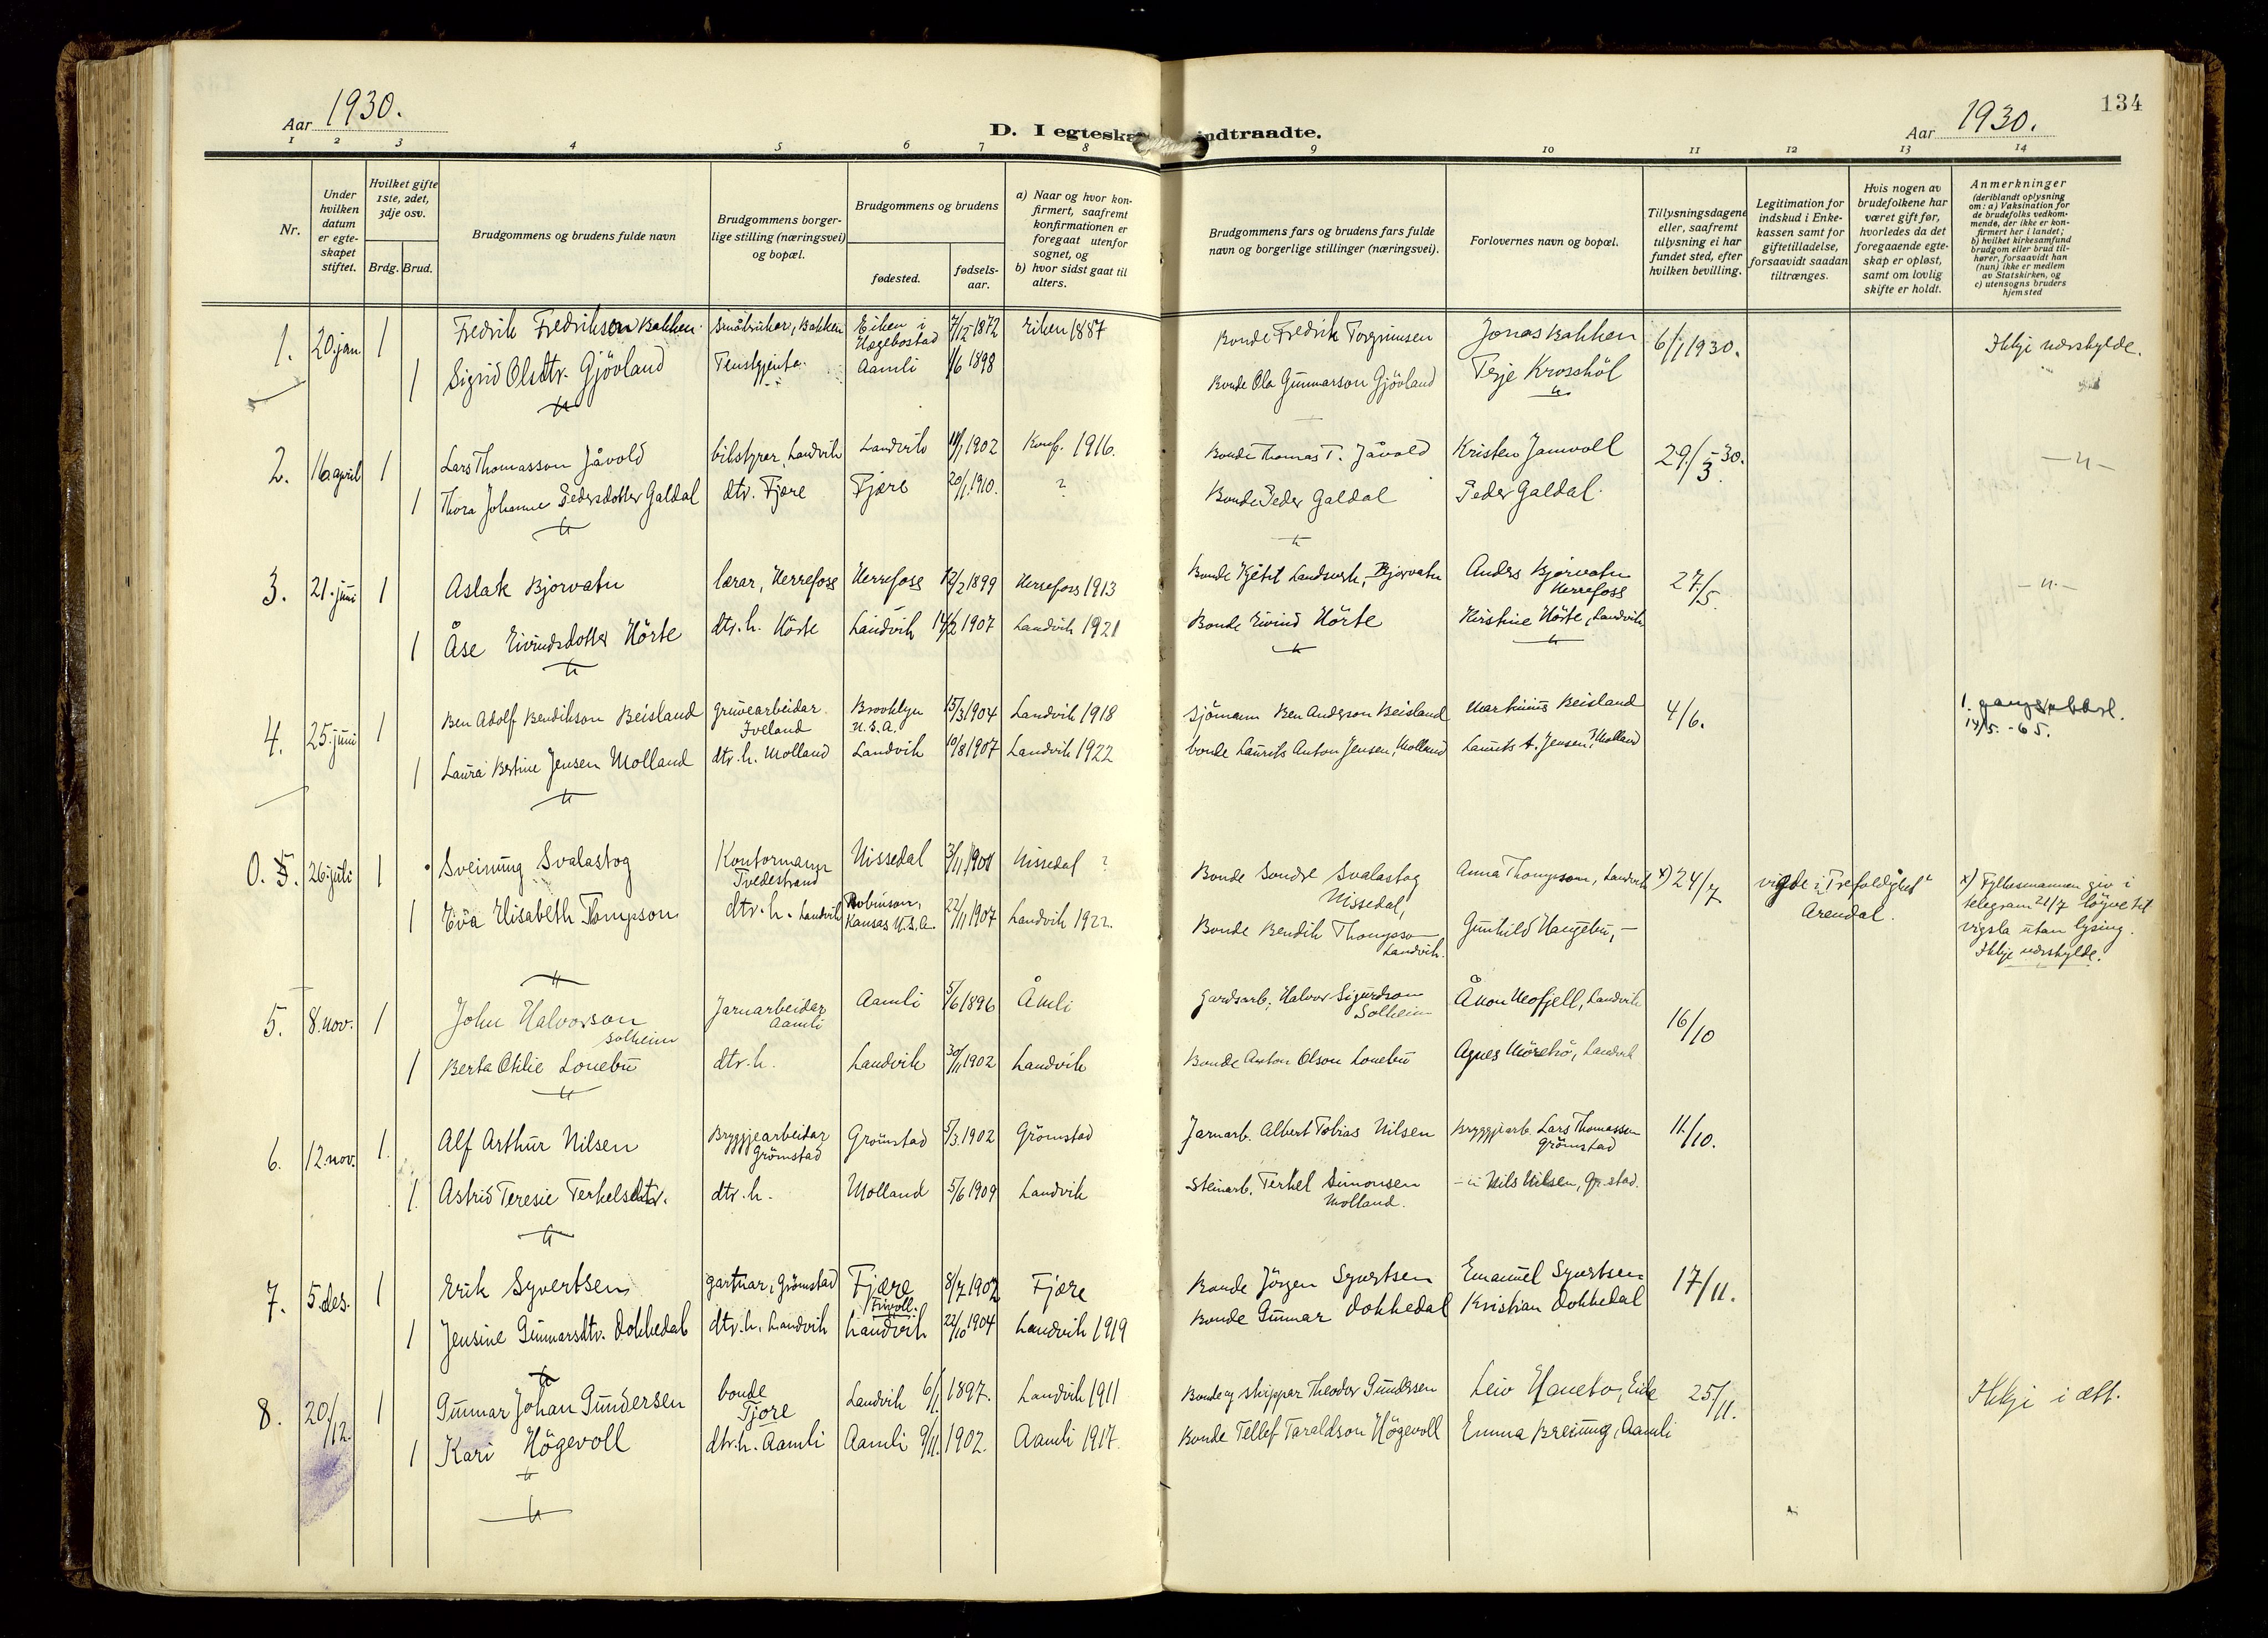 134
Aar 1930.
D. I egteska indtraadte.
Aar 1930.
1 2 3 4 5 6 7 8 9 10 11 12 13 14
Nr.
Under hvilken datum er egteskapet stiftet.
Hvilket gifte 1ste, 2det, 3dje osv.
Brdg. Brud.
Brudgommens og brudens fulde navn
Brudgommens borgerlige stilling (næringsvei) og bopæl.
Brudgommens og brudens
fødested.
fødselsaar.
a) Naar og hvor konfirmert, saafremt konfirmationen er foregaat utenfor sognet, og
b) hvor sidst gaat til alters.
Brudgommens fars og brudens fars fulde navn og borgerlige stillinger (næringsvei).
Forlovernes navn og bopæl.
Tillysningsdagene eller, saafremt tillysning ei har fundet sted, efter hvilken bevilling.
Legitimation for indskud i Enkekassen samt for giftetilladelse, forsaavidt saadan tiltrænges.
Hvis nogen av brudefolkene har været gift før, hvorledes da det foregaaende egteskap er opløst, samt om lovlig skifte er holdt.
Anmerkninger
(deriblandt oplysning om: a) Vaksination for de brudefolks vedkommende, der ikke er konfirmert her i landet;
b) hvilket kirkesamfund brudgom eller brud tilhører, forsaavidt han (hun) ikke er medlem av Statskirken, og
c) utensogns bruders hjemsted
1. 20. jan 1 Fredrik Fredrikson Bakken. Småbruker, Bakken Eiken i Hægebostad 7/12 1872 Eiken 1887 Bonde Fredrik Torgrimsen Jonas Bakken 6/1 1930. Ikkje nærskylde.
1 Sigrid Olsdtr. Gjövland Tenstgjenta Aamli 1/6 1898 Bonde Ola Gunnarson Gjövland Terje Kroschöl
2. 16 april 1 Lars Thomasson Jåvold bilstyrer, Landvik Landvik 11/1 1902 Konf. 1916. Bonde Thomas T. Jåvold Kristen Jamvoll 29/3 -30. — " —
1 Thora Johanne Pedersdotter Galdal dtr. Fjære Fjære 20/1 1910. ? Bonde Peder Galdal Peder Galdal.
3. 21. juni 1 Aslak Bjorvatn lærar, Herrefoss Herrefoss 12/2 1899 Herrefoss 1913 Bonde Kjetil Landsverk, Bjorvatn Anders Bjorvatn Herrefoss 27/5. — " —
1 Åse Eivindsdotter Hörte dtr. h. Hörte Landvik 14/2 1907 Landvik 1921 Bonde Eivind Hörte Kirstine Hörte, Landvik
4. 25. juni 1 Ben Adolf Bendikson Beisland gruvearbeidar Iveland Brooklyn U.S.A. 15/3 1904 Landvik 1918 Sjömann Ben Anderson Beisland Martinius Beisland 4/6. 1. 14/5. - 65.
1 Laura Bertine Jensen Molland dtr. h. Molland Landvik 10/8 1907 Landvik 1922 bonde Laurits Anton Jensen, Molland Laurits A. Jensen, Molland
0. 5. 26 juli 1 Sveinung Svalastog Kontormann Tvedestrand Nissedal 3/11 1901 Nissedal ? Bonde Sondre Svalastog Nissedal, Anna Thompson, Landvik x) 24/7 vigde i "Trefoldighet" Arendal. x) Fylkesmannen giv i telegram 21/7 löyve til vigsla utan lysing. Ikkje nærskylde.
1 Eva Elisabeth Tompson dtr. h. Landvik Robinson, Kansas U.S.A. 22/11 1907 Landvik 1922. Bonde Bendik Thompson Landvik. Gunhild Haugebu, —
5. 8. nov. 1 John Halvorson Solheim Jarnarbeidar Aamli Aamli 5/6 1896 Åmli Gardsarb. Halvor Sigurdson Solheim Åmon Neofjell, Landvik 16/10
1 Berta Otilie Lonebu dtr. h. Landvik 30/11 1902 Landvik Bonde Anton Olson Lonebu Agnes Mörebö, Landvik
6. 12. nov. 1. Alf Arthur Nilsen Bryggjearbeidar Grömstad Grömstad 5/3. 1902 Grömstad Jarnarb. Albert Tobias Nilsen Bryggjearb. Lars Thomassen Grömstad 11/10.
1. Astrid Teresie Terkelsdtr. dtr. h. Molland 5/6 1909 Landvik Steinarb. Terkel Simonsen Molland. — " — Nils Nilsen, Gr.stad.
7. 5. des. 1 Erik Syvertsen gartnar, Grömstad Fjære /Frivoll. 8/7 1902 Fjære Bonde Jörgen Syvertsen Emanuel Syvertsen 17/11.
1 Jensine Gunnarsdtr. Dokkedal dtr. h. Landvik Landvik 22/10 1904 Landvik 1919 Bonde Gunnar Dokkedal Kristian Dokkedal
8. 20/12. 1 Gunnar Johan Gundersen bonde Fjære Landvik 6/1. 1897. Landvik 1911 Bonde og skipper Theodor Gundersen Leiv Haneto, Eide 25/11. Ikkje i ætt.
1 Kari Högevoll dtr. h. Aamli Aamli 9/11. 1902. Aamli 1917. Bonde Tellef Taraldson Högevoll Emma Breiung, Aamli